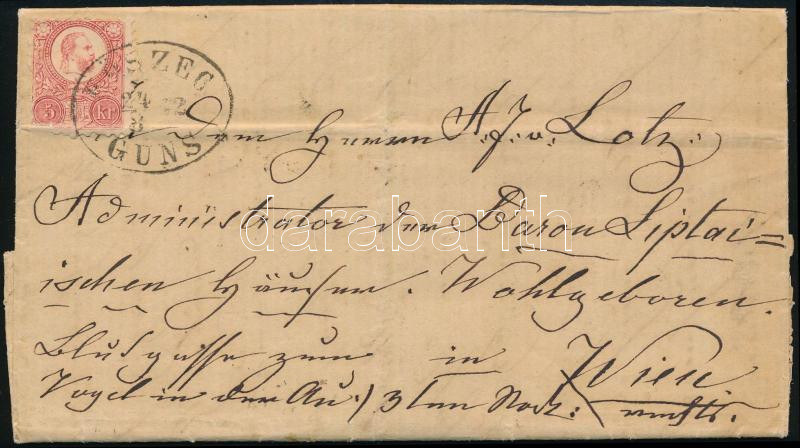 KŐSZEG
24 12
3
GÜNS
5 Kr
dem Herrn A. J. v. Lotz
Administrator der Baron Liptai=
ischen Häuser. Wohlgeboren.
zum in Wien
Vogel in der Au.) 3ten Stock:
darabanth